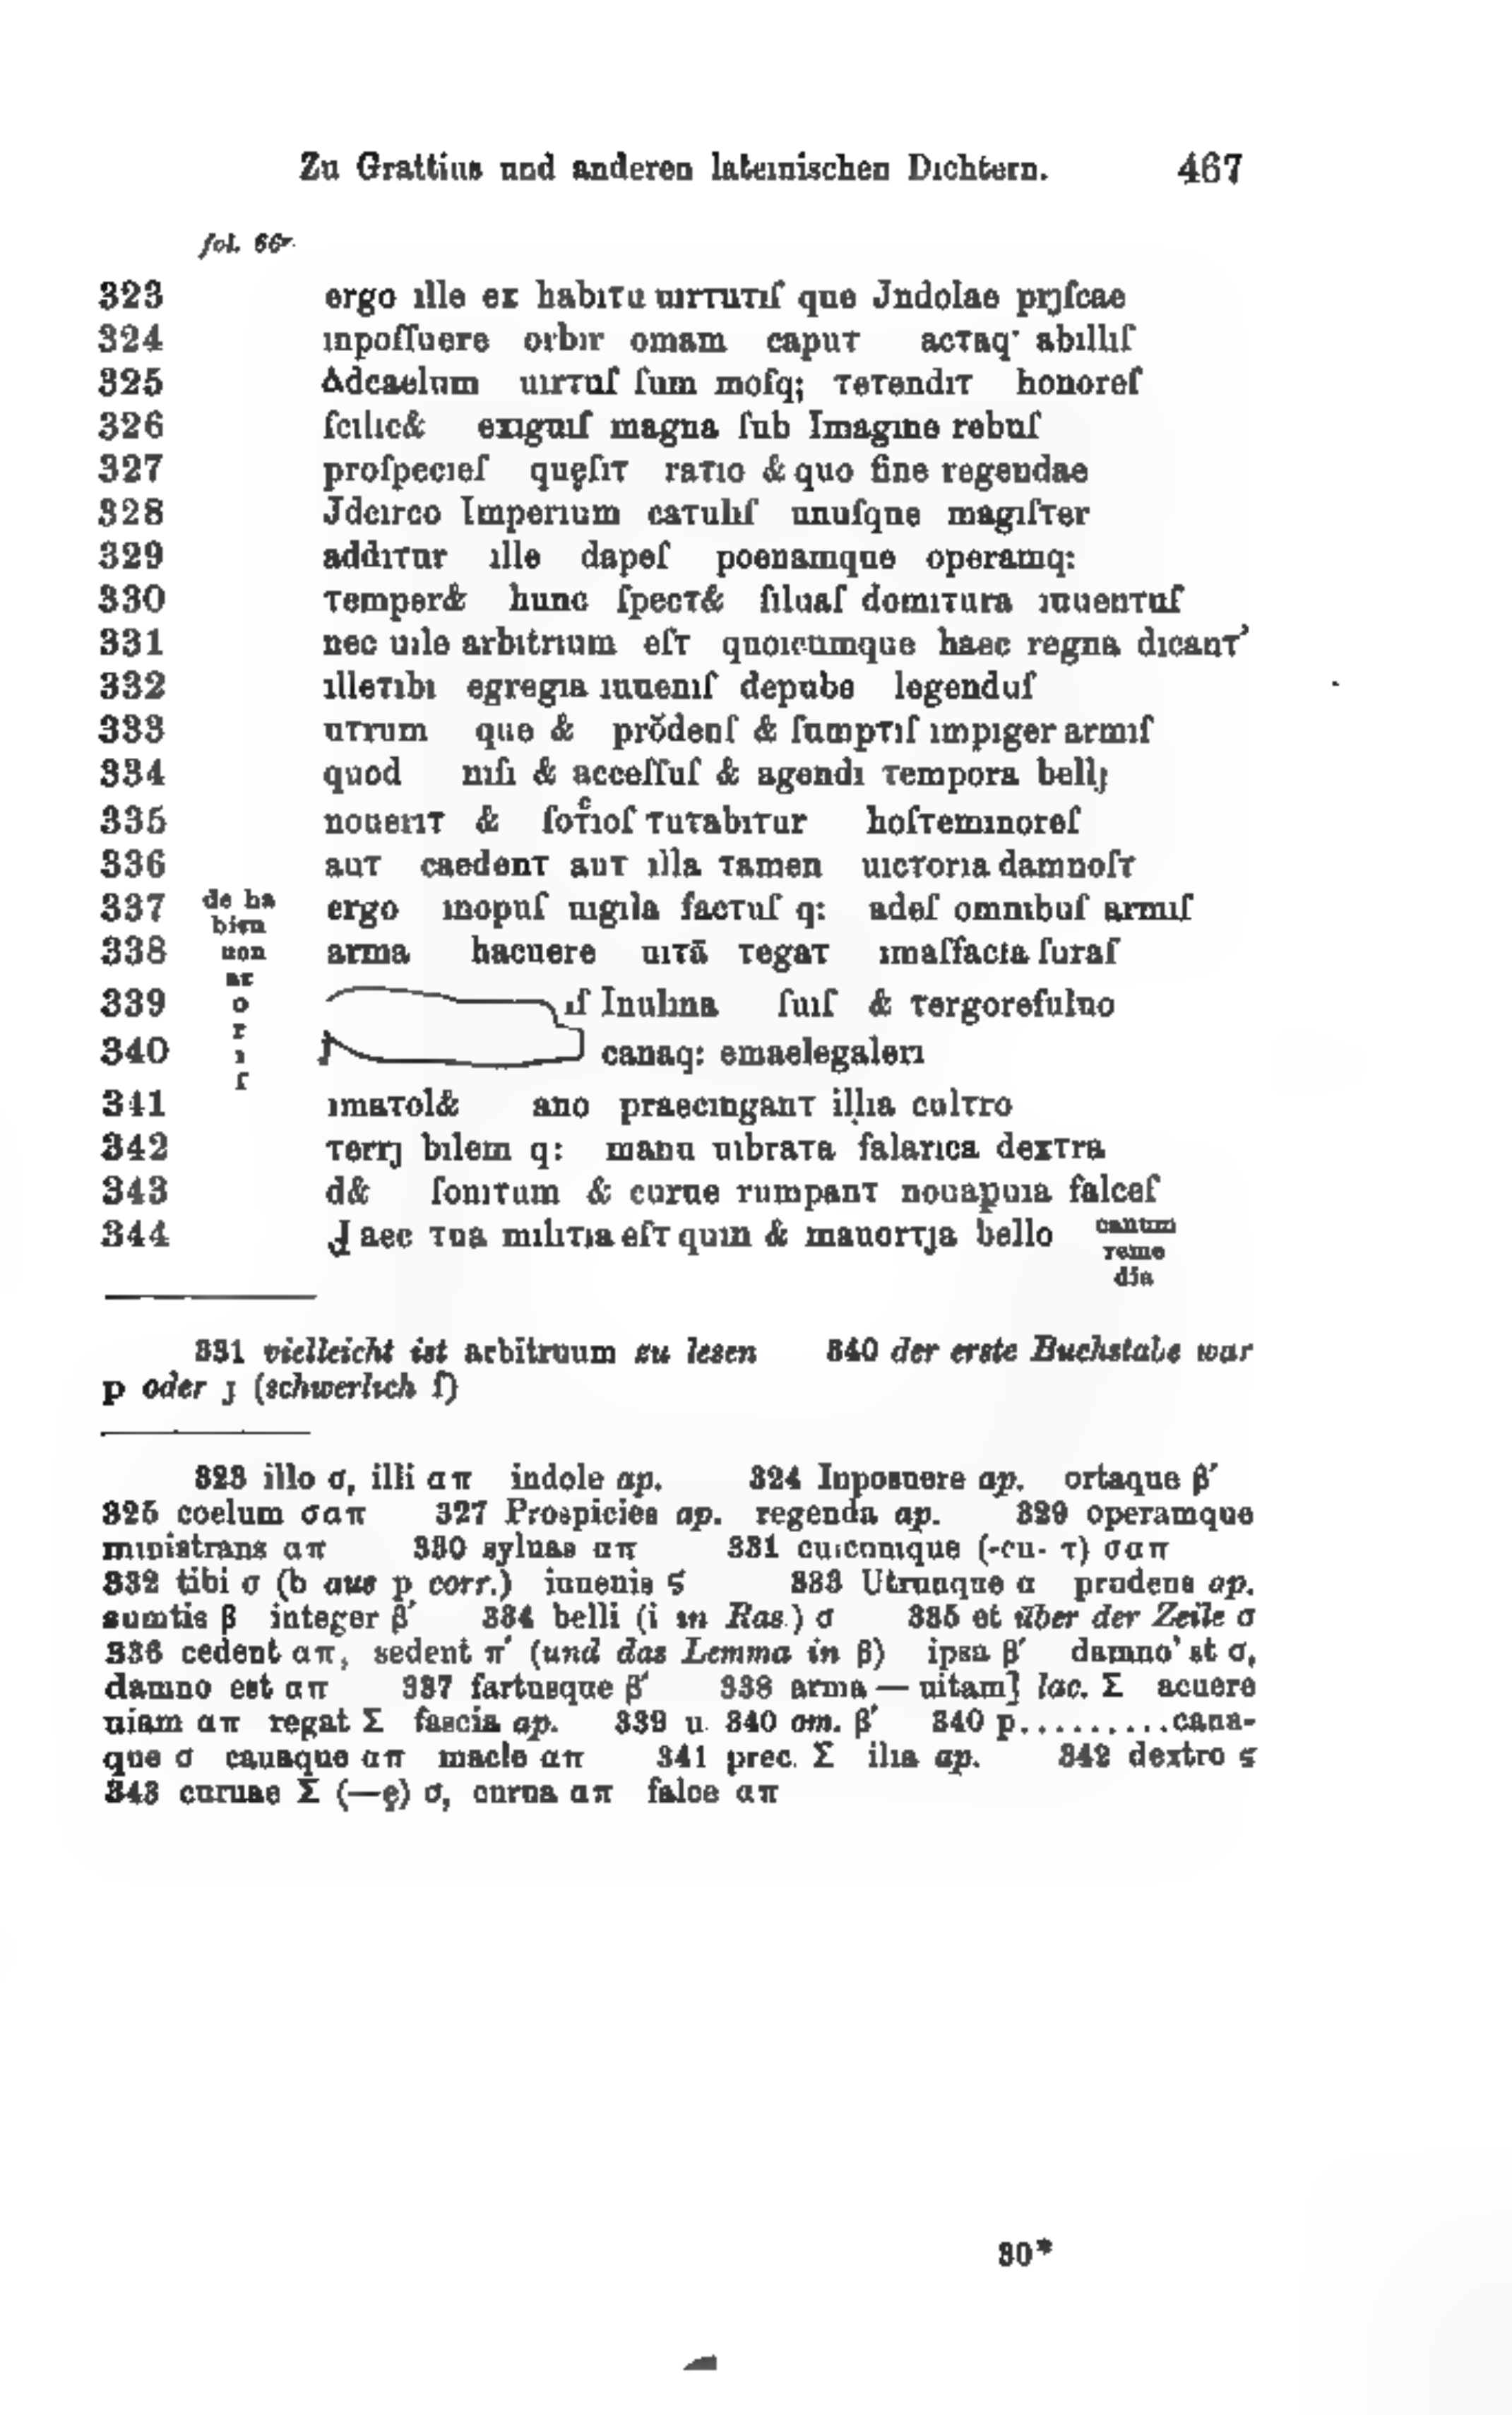 Zu Grattius und anderen lateinischen Dichtern. 467
fol. 66r.
323 ergo ılle ex habıτu uırτuτıſ que Jndolae prȷſcae
324 ınpoſſuere orbır omam capuτ acτaq· abıllıſ
325 Adcaelum uırτuſ ſum moſq; τeτendıτ honoreſ
326 ſcılıc& exıguıſ magna ſub Imagıne rebuſ
327 proſpecıeſ quęſıτ raτıo & quo fine regendae
328 Jdcırco Imperıum caτulıſ unuſque magıſτer
329 addıτur ılle dapeſ poenamque operamq:
330 τemper& hunc ſpecτ& ſıluaſ domıτura ıuuenτuſ
331 nec uıle arbıtrıum eſτ quoıcumque haec regna dıcanτ’
332 ılleτıbı egregıa ıuuenıſ depube legenduſ
333 uτrum que & prŏdenſ & ſumpτıſ ımpıger armıſ
334 quod nıſı & acceſſuſ & agendı τempora bellȷ
335 nouerıτ & ſoτ͑ıoſ τuτabıτur hoſτemınoreſ
336 auτ caedenτ auτ ılla τamen uıcτorıa damnoſτ
337 de ha ergo ınopuſ uıgıla facτuſ q: adeſ omnıbuſ armıſ
bıτu
338 uon arma hacuere uıτā τegaτ ımaſfacıa ſuraſ
ar
339 o ıſ Inulına ſuıſ & τergoreſuluo
r
340 ı canaq: emaelegalerı
ſ
341 ımaτol& ano praecınganτ illıa culτro
342 τerrȷ bılem q: manu uıbraτa falarıca dexτra
343 d& ſonıτum & curue rumpanτ nouapuıa falceſ
344 J aec τua mılıτıa eſτ quın & mauorτȷa bello cantum
reme
dia
331 vielleicht ist arbitruum zu lesen 340 der erste Buchstabe war
p oder ȷ (schwerlich ſ)
323 illo σ, illi απ indole ap. 324 Inposuere ap. ortaque β′
325 coelum σαπ 327 Prospicies ap. regenda ap. 329 operamque
ministrans απ 330 syluas απ 331 cuicunque (-cu- τ) σαπ
332 tibi σ (b aus p corr.) iuuenis ς 333 Utrunque α prudens ap.
sumtis β integer β′ 334 belli (i in Ras.) σ 335 et über der Zeile σ
336 cedent απ, sedent π′ (und das Lemma in β) ipsa β′ damno’st σ,
damno est απ 337 fartusque β′ 338 arma — uitam] lac. Σ acuere
uiam απ regat Σ fascia ap. 339 u. 340 om. β′ 340 p.........cana-
que σ cauaque απ macle απ 341 prec. Σ ilia ap. 342 dextro ς
343 curuae Σ (—ę) σ, curua απ falce απ
30*